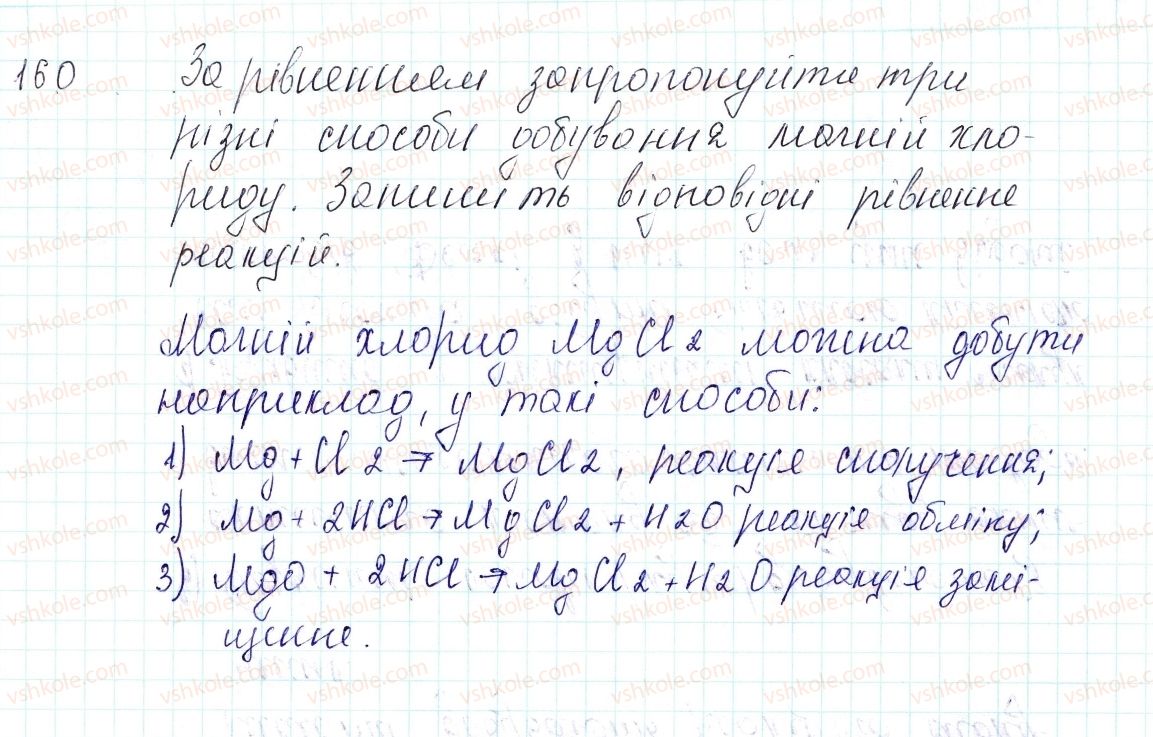 160 За рівненням запропонуйте три
різні способи добування магній хло-
риду. Запишіть відповідні рівнення
реакцій.
Магній хлорид MgCl2 можна добути
наприклад, у такі способи:
1) Mg + Cl2 → MgCl2, реакція сполучення;
2) Mg + 2HCl → MgCl2 + H2O реакція обміну;
3) MgO + 2HCl → MgCl2 + H2O. реакція замі-
щення.